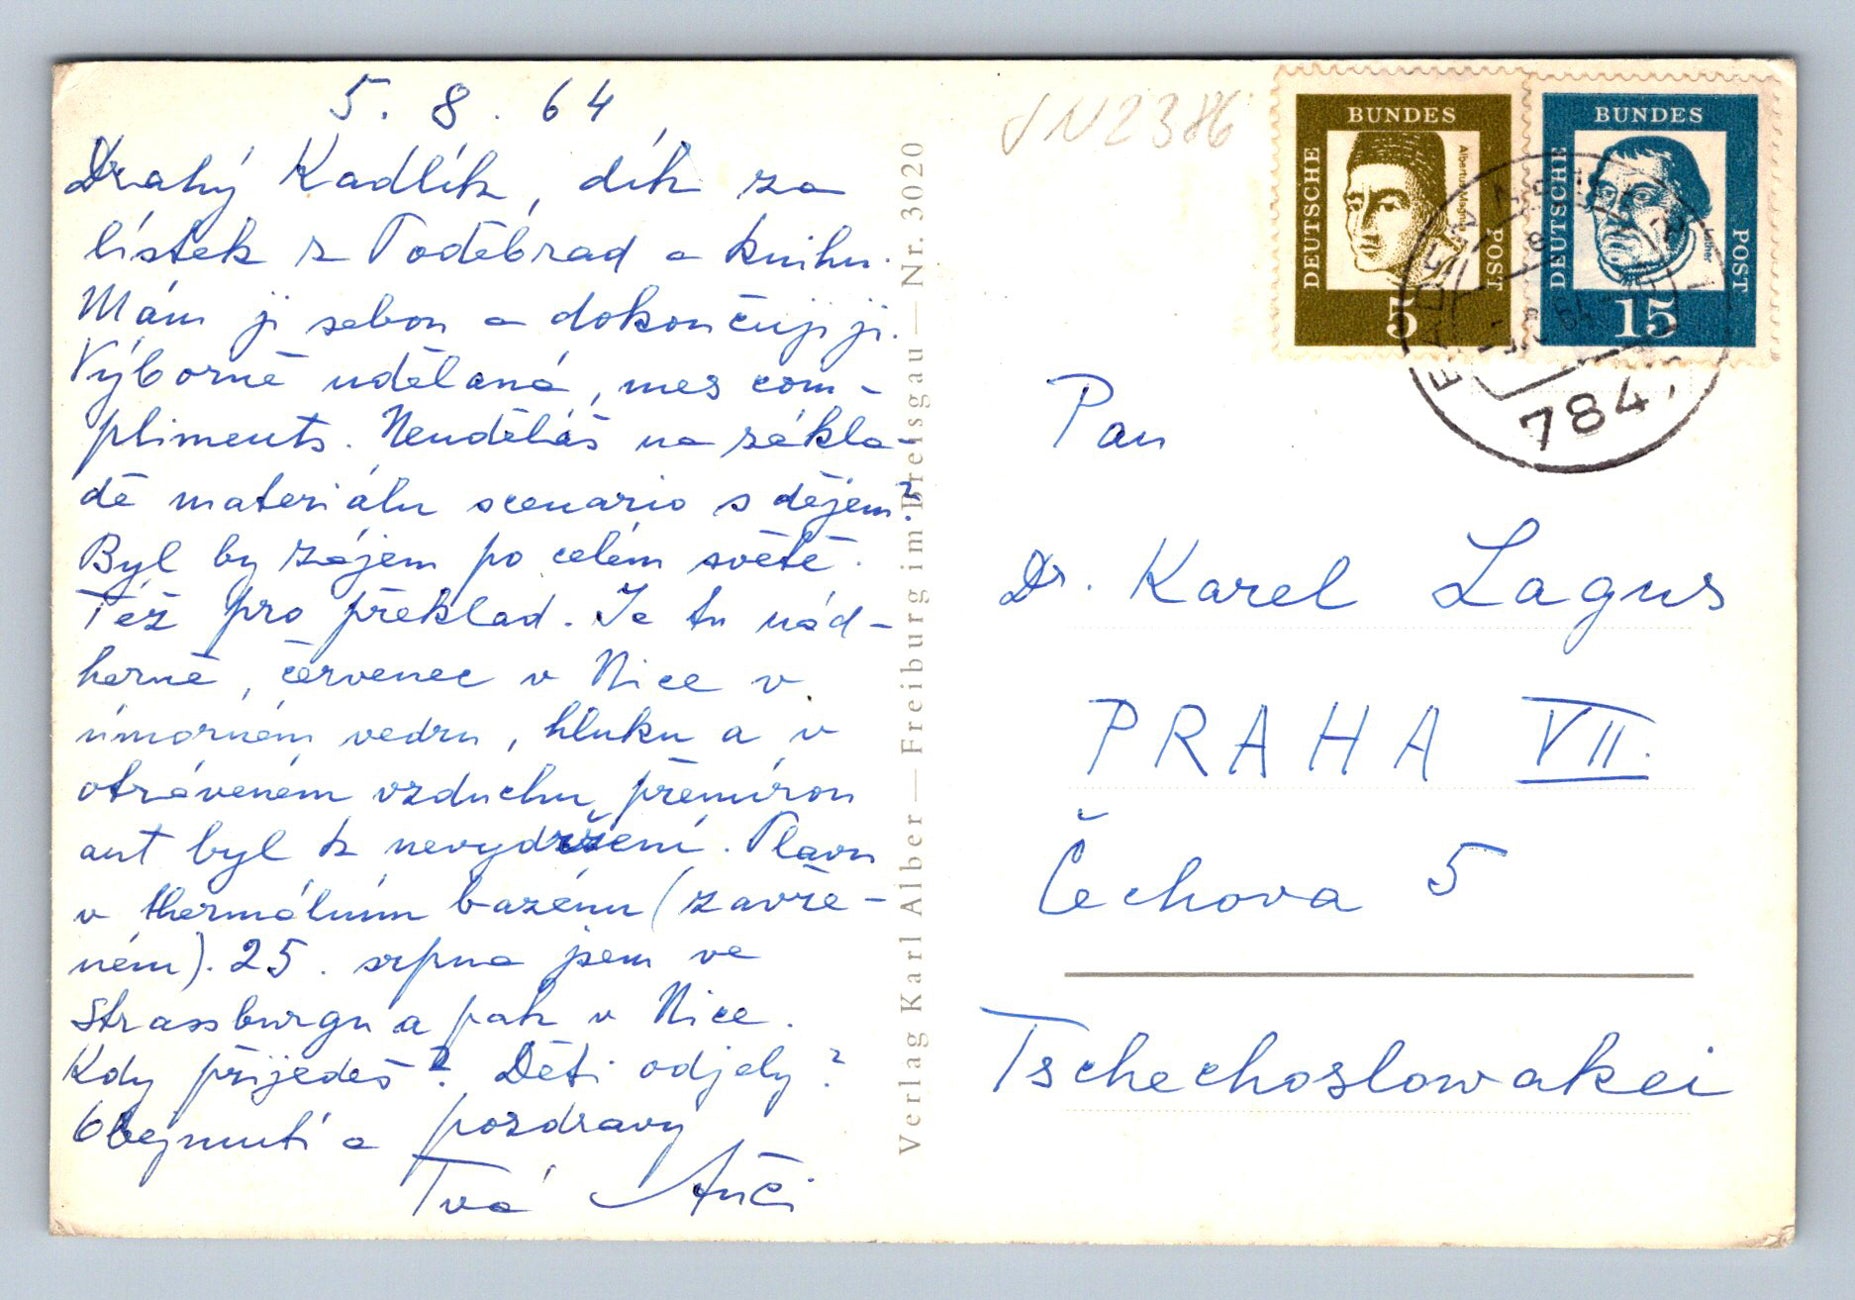 5. 8. 64
Drahý Kadlík, dík za
lístek z Poděbrad a knihu.
Mám ji sebou a dokončuji ji.
Výborně udělaná, mes com-
pliments. Neuděláš na zákla-
dě materiálu scenario s dějem?
Byl by zájem po celém světě.
Též pro překlad. Je tu nád-
herně, červenec v Nice v
úmorném vedru, hluku a v
otráveném vzduchu přemírou
aut byl k nevydržení. Plavu
v thermálním bazénu (zavře-
ném). 25. srpna jsem ve
Strassburgu a pak v Nice.
Kdy přijedeš? Děti odjely?
Obejmutí a pozdravy
Tvá Anči
Verlag Karl Alber — Freiburg im Breisgau — Nr. 3020
JN2386
DEUTSCHE BUNDES POST
Albertus Magnus
5
DEUTSCHE BUNDES POST
Luther
15
784
Pan
Dr. Karel Lagus
PRAHA VII.
Čechova 5
Tschechoslowakei